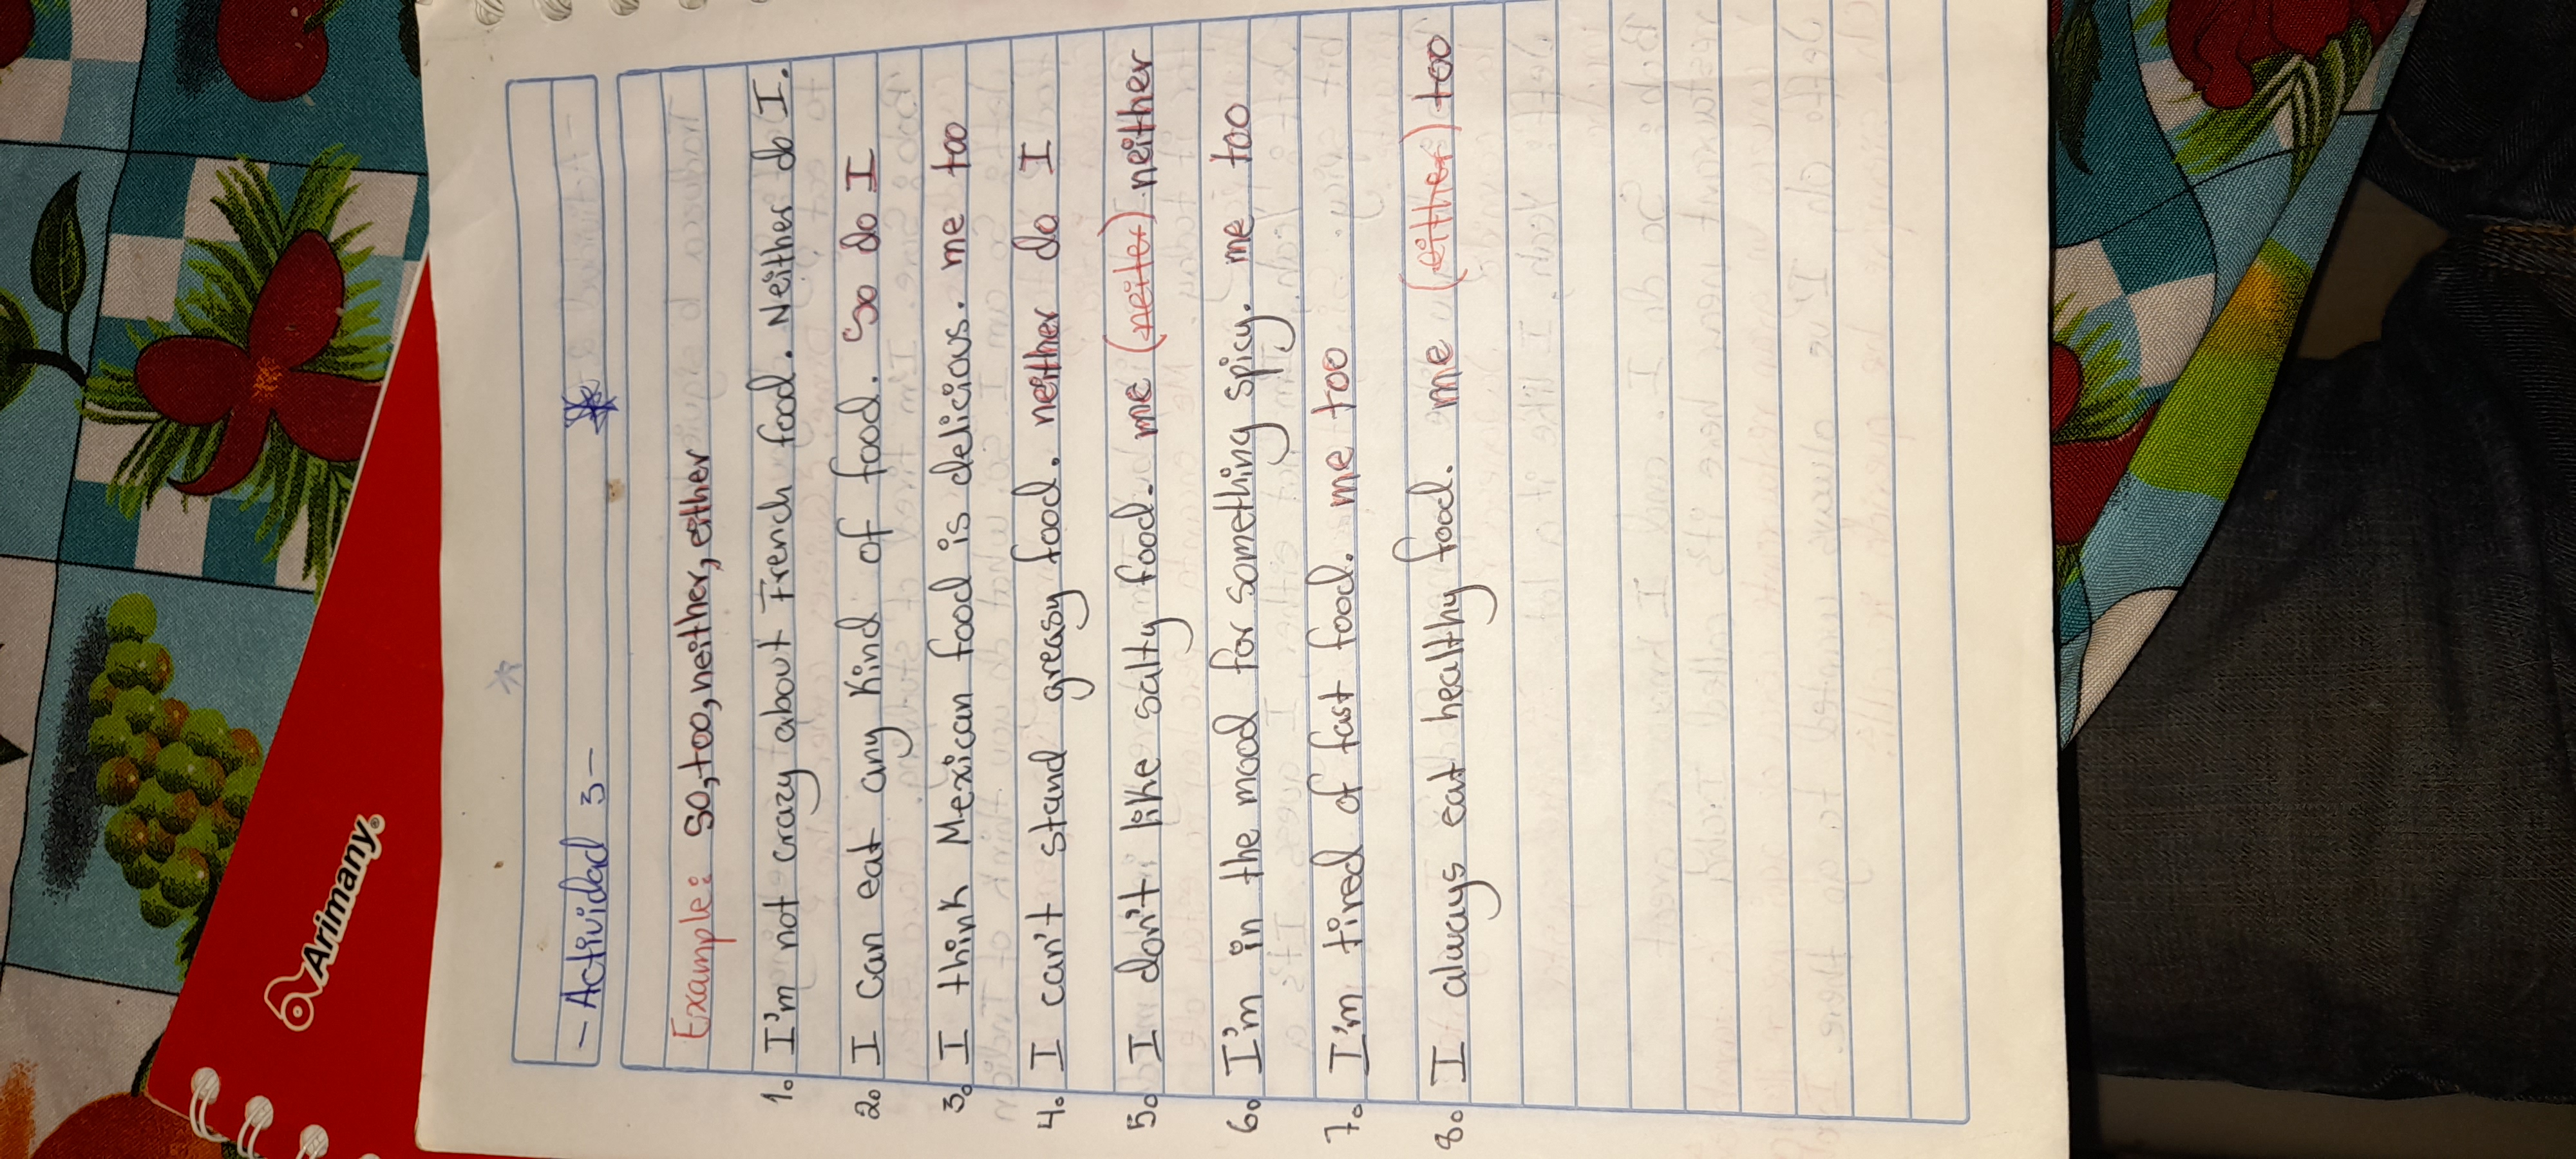 Arimany
- Actividad 3 -
Example: so, too, neither, either
1. I'm not crazy about French food. Neither do I.
2. I can eat any kind of food. So do I
3. I think Mexican food is delicious. me too
4. I can't stand greasy food. neither do I
5. I don't like salty food. me (neiter) neither
6. I'm in the mood for something spicy. me too
7. I'm tired of fast food. me too
8. I always eat healthy food. me (either) too